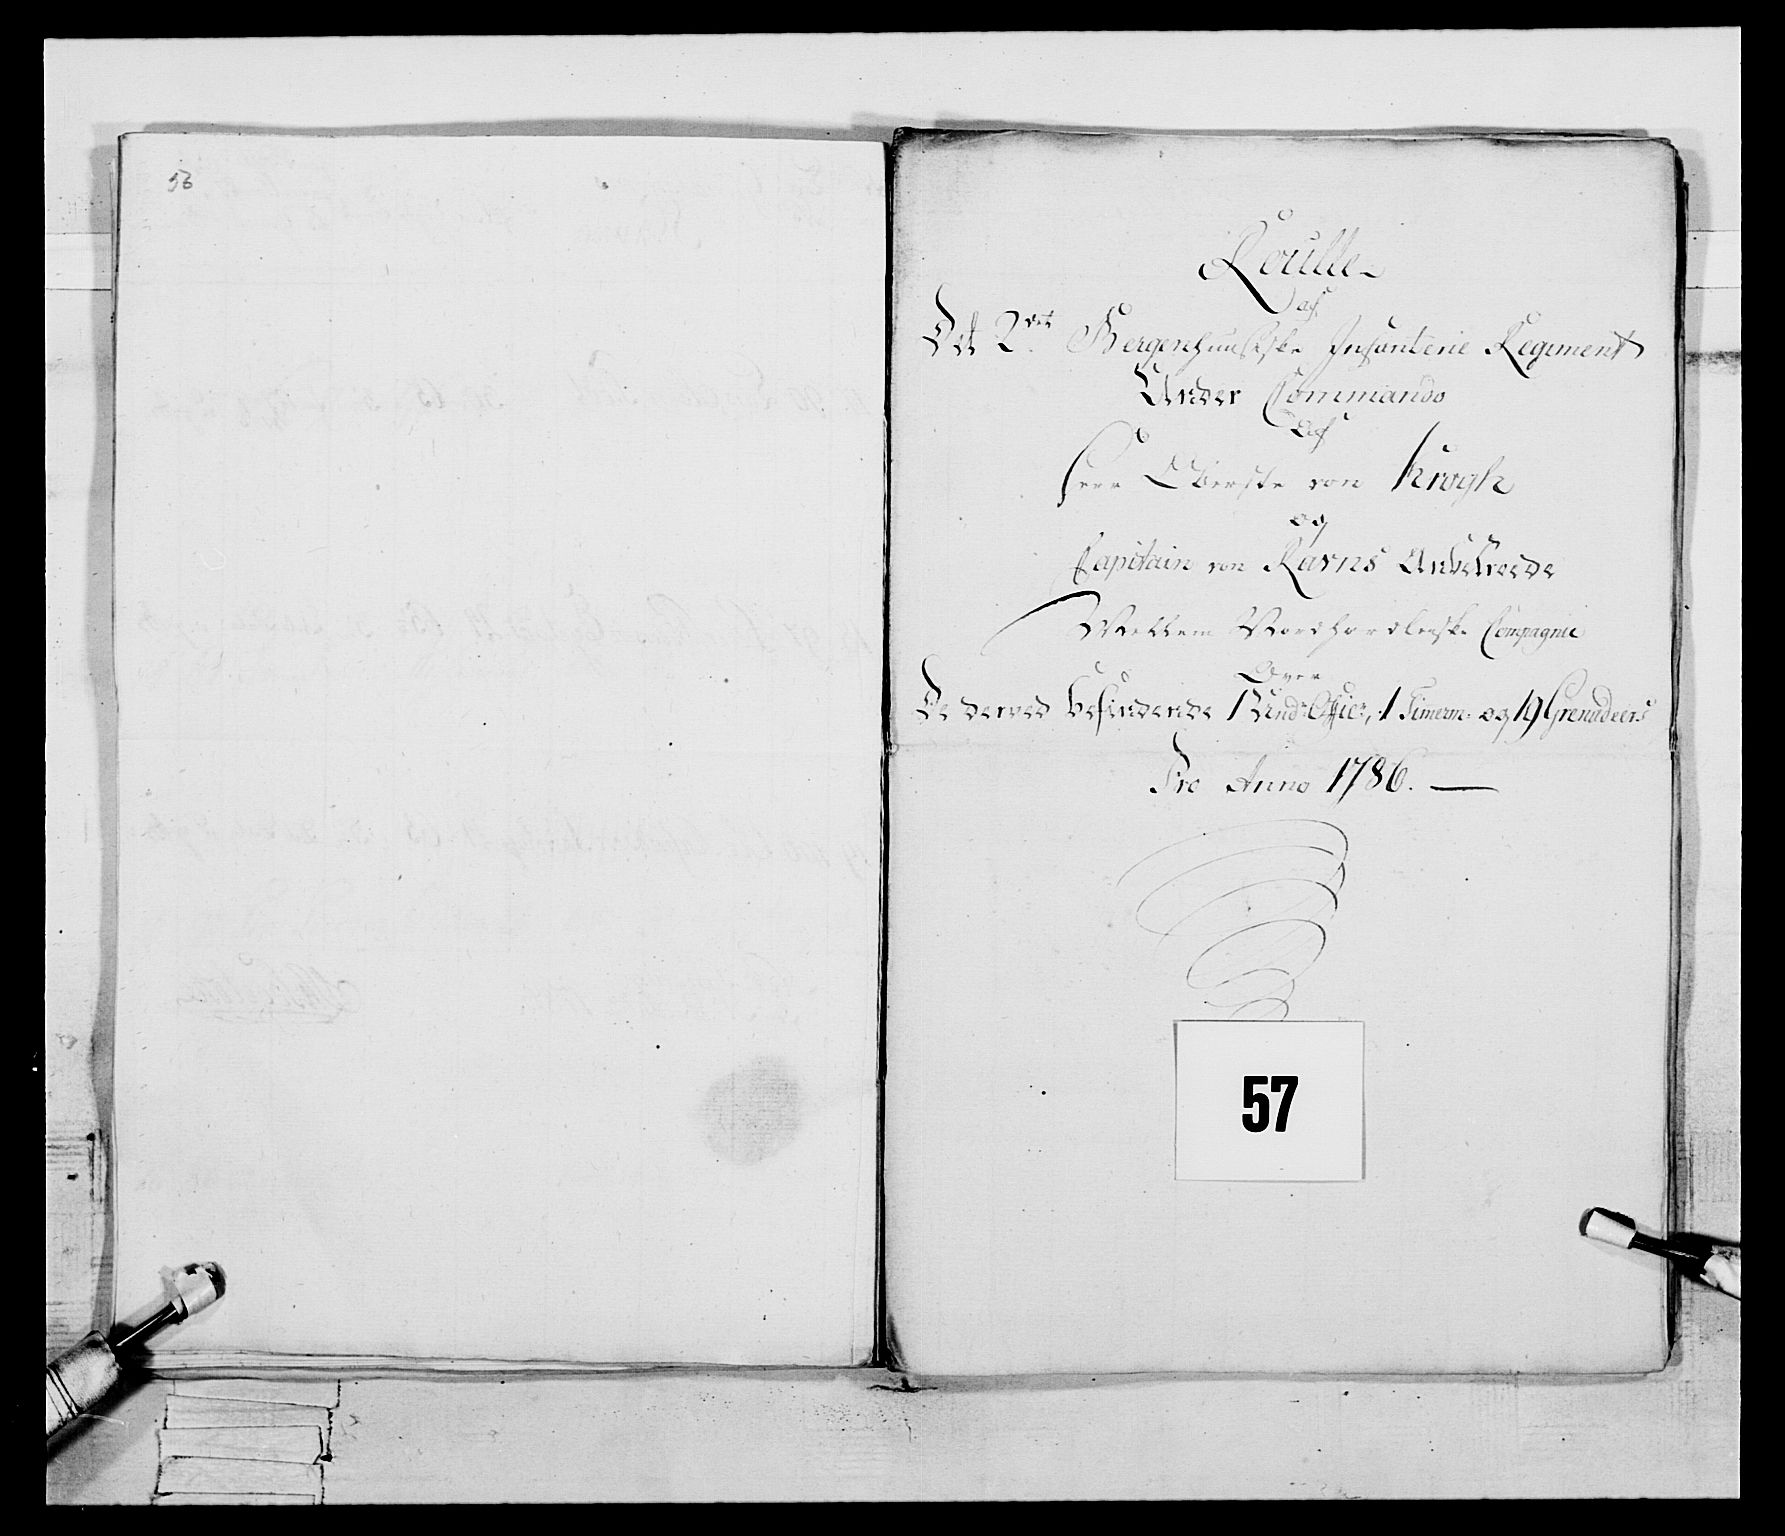 56
Roulle
af
Det 2det Bergenhuusiske Infanterie Regiment
Under Commando
Af
Herr Oberste von Krogh
og
Capitain von Ravns Anbetroede
Mellem Nordhordlenske Compagnie
Over
De derved befindende 1 Und: Officr, 1 Timerm: og 19 Grenadeers
Pro Anno 1786.
57